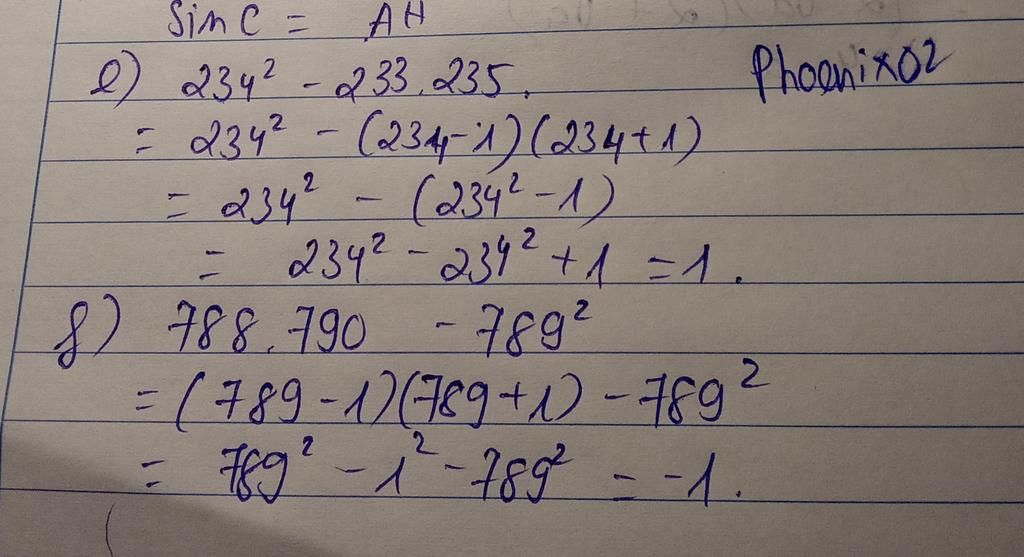 Sin C = AH
e) 234² - 233.235.
Phoenix02
= 234² - (234-1)(234+1)
= 234² - (234² - 1)
= 234² - 234² + 1 = 1.
f) 788.790 - 789²
= (789 - 1)(789 + 1) - 789²
= 789² - 1² - 789² = -1.